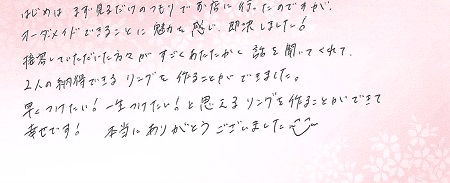 はじめは まず見るだけのつもりでお店に行ったのですが、
オーダーメイドできることに魅力を感じ、即決しました!
接客していただいた方々が すごくあたたかく 話を聞いてくれて、
2人の納得できる リングを作ることができました。
早くつけたい!一生つけたい!と思えるリングを作ることができて
幸せです! 本当にありがとうございました